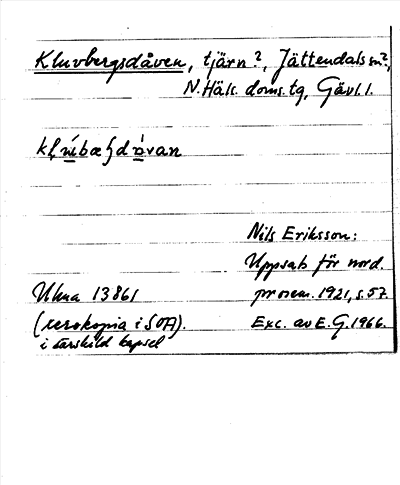 Kluvbergsdåven, tjärn?, Jättendals sn?,
N. Häls. doms. tg, Gävl. l.
Nils Eriksson:
Uppsats för nord.
prosem. 1921, s. 57.
Exc. av E. G. 1966.
Ulma 13861
(xerokopia i SOA).
i särskild kapsel